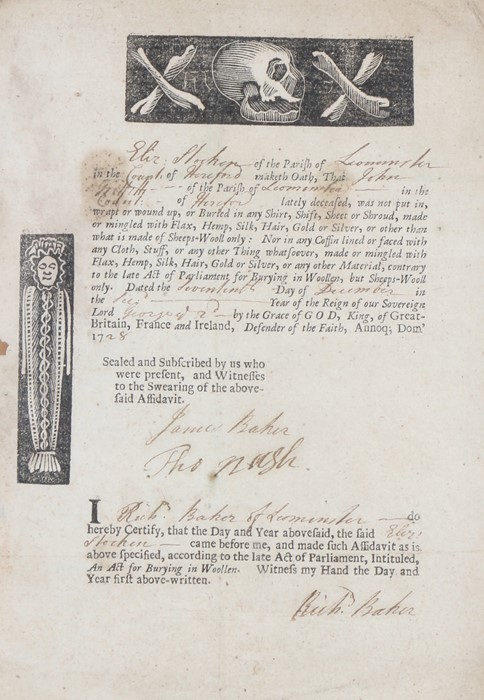 Eliz: Stocken of the Parish of Leominster
in the County of Hereford maketh Oath, That John
of the Parish of Leominster in the
of Hereford lately deceased, was not put in,
wrapt or wound up, or Buried in any Shirt, Shift, Sheet or Shroud, made
or mingled with Flax, Hemp, Silk, Hair, Gold or Silver, or other than
what is made of Sheeps-Wooll only: Nor in any Coffin lined or faced with
any Cloth, Stuff, or any other Thing whatsoever, made or mingled with
Flax, Hemp, Silk, Hair, Gold or Silver, or any other Material, contrary
to the late Act of Parliament for Burying in Woollen, but Sheeps-Wooll
only. Dated the Seventeenth Day of December in
the Year of the Reign of our Sovereign
Lord George ye 2d by the Grace of GOD, King, of Great-
Britain, France and Ireland, Defender of the Faith, Annoq; Dom'
1728
Sealed and Subscribed by us who
were present, and Witnesses
to the Swearing of the above-
said Affidavit.
James Baker
Tho Nash.
I Richd. Baker of Leominster do
hereby Certify, that the Day and Year abovesaid, the said Eliz:
Stocken came before me, and made such Affidavit as is
above specified, according to the late Act of Parliament, Intituled,
An Act for Burying in Woollen. Witness my Hand the Day and
Year first above-written.
Richd. Baker